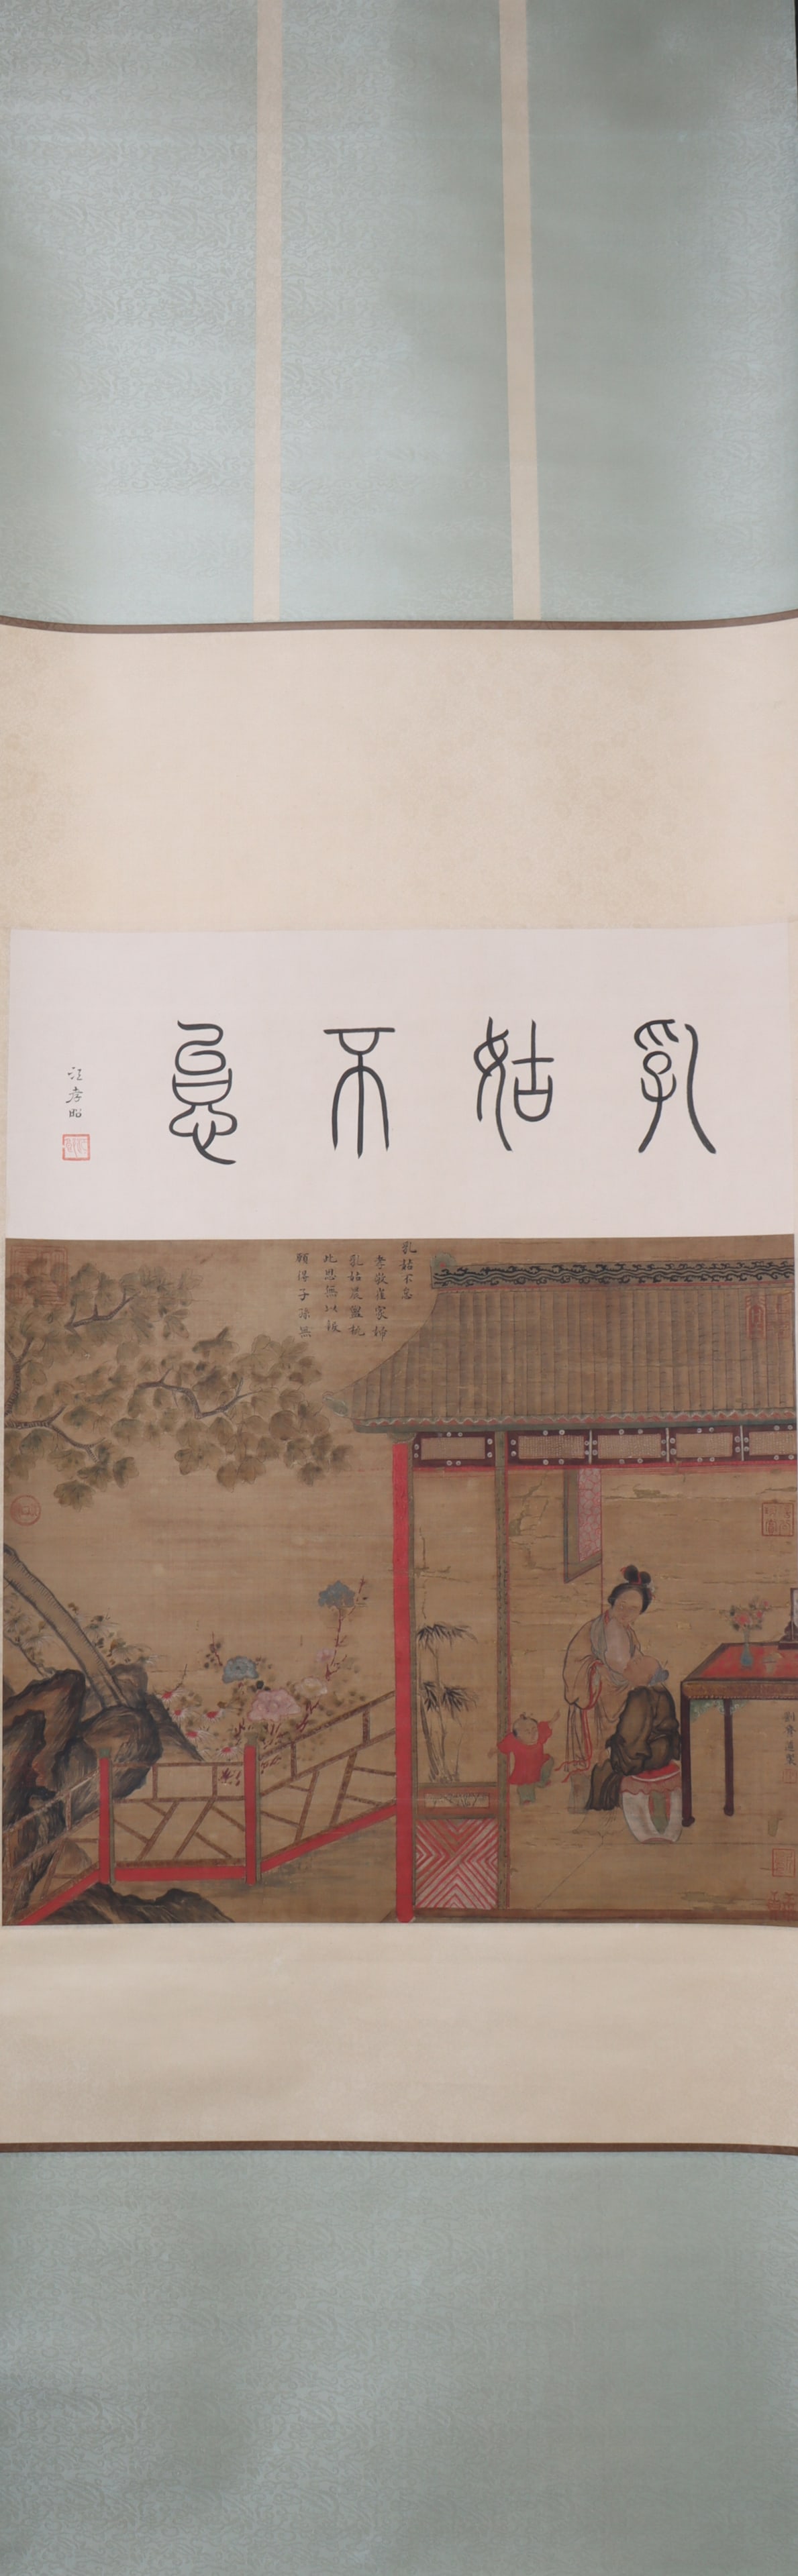 乳姑不怠
江孝昭
乳姑不怠
孝敬崔家婦
乳姑晨盥梳
此恩無以報
願得子孫